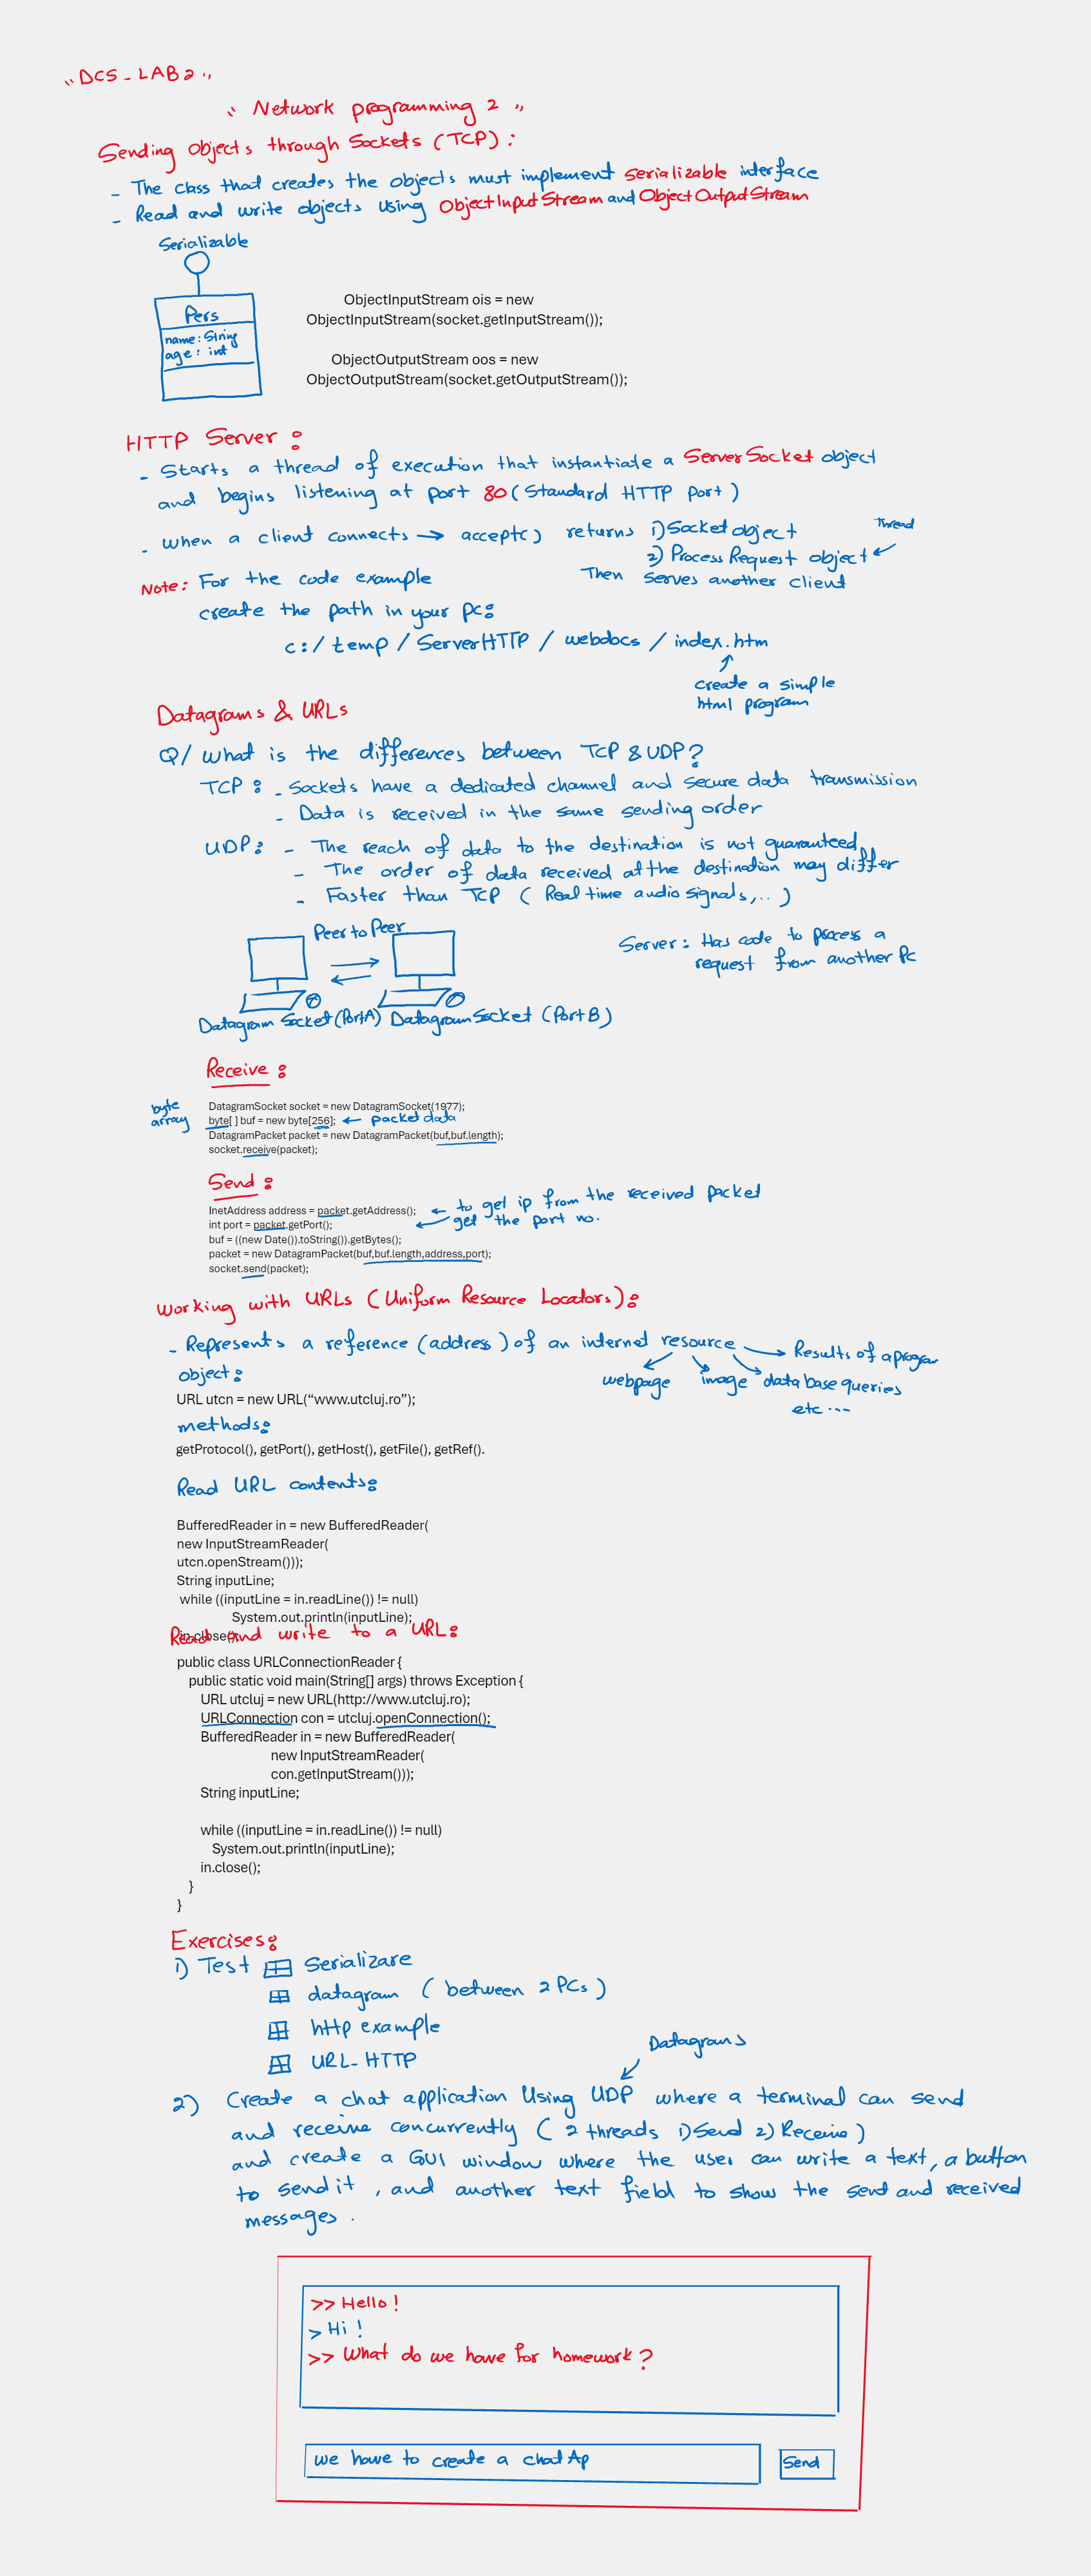 "DCS - LAB 2"
"Network programming 2"
Sending Objects through Sockets (TCP):
- The class that creates the objects must implement serializable interface
- Read and write objects using ObjectInputStream and ObjectOutputStream
Serializable
Pers
name: String
age: int
ObjectInputStream ois = new
ObjectInputStream(socket.getInputStream());
ObjectOutputStream oos = new
ObjectOutputStream(socket.getOutputStream());
HTTP Server:
- Starts a thread of execution that instantiate a ServerSocket object
and begins listening at port 80 (Standard HTTP port)
- when a client connects → accept() returns 1) Socket object
Thread
2) Process Request object
Then serves another client
Note: For the code example
create the path in your pc:
c:/temp/ServerHTTP/webdocs/index.htm
create a simple
html program
Datagrams & URLs
Q/ what is the differences between TCP & UDP?
TCP: - Sockets have a dedicated channel and secure data transmission
- Data is received in the same sending order
UDP: - The reach of data to the destination is not guaranteed
- The order of data received at the destination may differ
- Faster than TCP (Real time audio signals,..)
Peer to Peer
Server: Has code to process a
request from another Pc
Datagram Socket (Port A) Datagram Socket (Port B)
Receive:
byte
array
DatagramSocket socket = new DatagramSocket(1977);
byte[ ] buf = new byte[256]; ← packet data
DatagramPacket packet = new DatagramPacket(buf,buf.length);
socket.receive(packet);
Send:
InetAddress address = packet.getAddress(); ← to get ip from the received packet
int port = packet.getPort(); ← get the port no.
buf = ((new Date()).toString()).getBytes();
packet = new DatagramPacket(buf,buf.length,address,port);
socket.send(packet);
Working with URLs (Uniform Resource Locators):
- Represents a reference (address) of an internet resource → Results of a program
webpage image data base queries
etc ...
object:
URL utcn = new URL(“www.utcluj.ro”);
methods:
getProtocol(), getPort(), getHost(), getFile(), getRef().
Read URL contents:
BufferedReader in = new BufferedReader(
new InputStreamReader(
utcn.openStream()));
String inputLine;
while ((inputLine = in.readLine()) != null)
System.out.println(inputLine);
in.close();
Read and write to a URL:
public class URLConnectionReader {
public static void main(String[] args) throws Exception {
URL utcluj = new URL(http://www.utcluj.ro);
URLConnection con = utcluj.openConnection();
BufferedReader in = new BufferedReader(
new InputStreamReader(
con.getInputStream()));
String inputLine;
while ((inputLine = in.readLine()) != null)
System.out.println(inputLine);
in.close();
}
}
Exercises:
1) Test Serializare
datagram (between 2 PCs)
http example
URL-HTTP
Datagrams
2) Create a chat application Using UDP where a terminal can send
and receive concurrently (2 threads 1) Send 2) Receive)
and create a GUI window where the user can write a text, a button
to send it, and another text field to show the sent and received
messages.
>> Hello!
> Hi!
>> What do we have for homework?
we have to create a chat Ap
Send